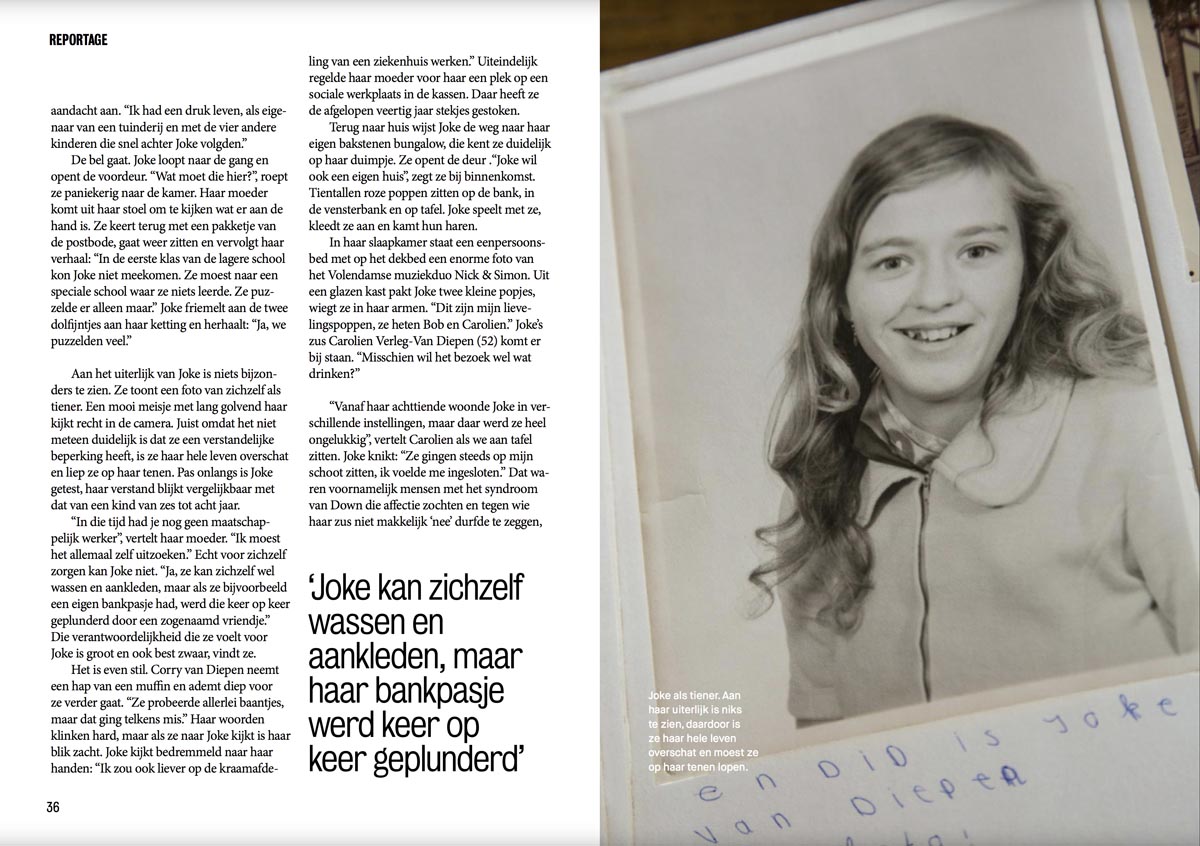 REPORTAGE
aandacht aan. “Ik had een druk leven, als eige-
naar van een tuinderij en met de vier andere
kinderen die snel achter Joke volgden.”
De bel gaat. Joke loopt naar de gang en
opent de voordeur. “Wat moet die hier?”, roept
ze paniekerig naar de kamer. Haar moeder
komt uit haar stoel om te kijken wat er aan de
hand is. Ze keert terug met een pakketje van
de postbode, gaat weer zitten en vervolgt haar
verhaal: “In de eerste klas van de lagere school
kon Joke niet meekomen. Ze moest naar een
speciale school waar ze niets leerde. Ze puz-
zelde er alleen maar.” Joke friemelt aan de twee
dolfijntjes aan haar ketting en herhaalt: “Ja, we
puzzelden veel.”
Aan het uiterlijk van Joke is niets bijzon-
ders te zien. Ze toont een foto van zichzelf als
tiener. Een mooi meisje met lang golvend haar
kijkt recht in de camera. Juist omdat het niet
meteen duidelijk is dat ze een verstandelijke
beperking heeft, is ze haar hele leven overschat
en liep ze op haar tenen. Pas onlangs is Joke
getest, haar verstand blijkt vergelijkbaar met
dat van een kind van zes tot acht jaar.
“In die tijd had je nog geen maatschap-
pelijk werker”, vertelt haar moeder. “Ik moest
het allemaal zelf uitzoeken.” Echt voor zichzelf
zorgen kan Joke niet. “Ja, ze kan zichzelf wel
wassen en aankleden, maar als ze bijvoorbeeld
een eigen bankpasje had, werd die keer op keer
geplunderd door een zogenaamd vriendje.”
Die verantwoordelijkheid die ze voelt voor
Joke is groot en ook best zwaar, vindt ze.
Het is even stil. Corry van Diepen neemt
een hap van een muffin en ademt diep voor
ze verder gaat. “Ze probeerde allerlei baantjes,
maar dat ging telkens mis.” Haar woorden
klinken hard, maar als ze naar Joke kijkt is haar
blik zacht. Joke kijkt bedremmeld naar haar
handen: “Ik zou ook liever op de kraamafde-
ling van een ziekenhuis werken.” Uiteindelijk
regelde haar moeder voor haar een plek op een
sociale werkplaats in de kassen. Daar heeft ze
de afgelopen veertig jaar stekjes gestoken.
Terug naar huis wijst Joke de weg naar haar
eigen bakstenen bungalow, die kent ze duidelijk
op haar duimpje. Ze opent de deur .“Joke wil
ook een eigen huis”, zegt ze bij binnenkomst.
Tientallen roze poppen zitten op de bank, in
de vensterbank en op tafel. Joke speelt met ze,
kleedt ze aan en kamt hun haren.
In haar slaapkamer staat een eenpersoons-
bed met op het dekbed een enorme foto van
het Volendamse muziekduo Nick & Simon. Uit
een glazen kast pakt Joke twee kleine popjes,
wiegt ze in haar armen. “Dit zijn mijn lieve-
lingspoppen, ze heten Bob en Carolien.” Joke’s
zus Carolien Verleg-Van Diepen (52) komt er
bij staan. “Misschien wil het bezoek wel wat
drinken?”
“Vanaf haar achttiende woonde Joke in ver-
schillende instellingen, maar daar werd ze heel
ongelukkig”, vertelt Carolien als we aan tafel
zitten. Joke knikt: “Ze gingen steeds op mijn
schoot zitten, ik voelde me ingesloten.” Dat wa-
ren voornamelijk mensen met het syndroom
van Down die affectie zochten en tegen wie
haar zus niet makkelijk ‘nee’ durfde te zeggen,
‘Joke kan zichzelf
wassen en
aankleden, maar
haar bankpasje
werd keer op
keer geplunderd’
36
Joke als tiener. Aan
haar uiterlijk is niks
te zien, daardoor is
ze haar hele leven
overschat en moest ze
op haar tenen lopen.
en DiD is Joke
van Diepen